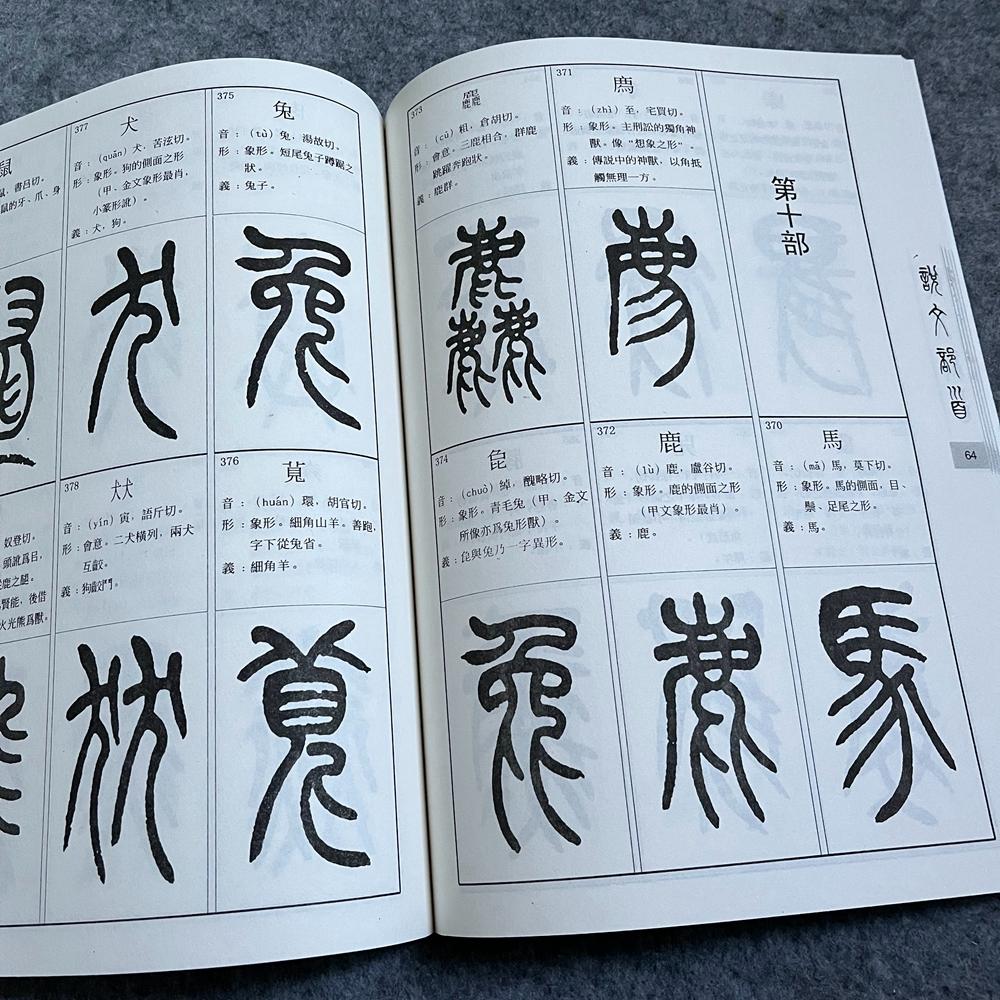 第十部
370
馬
音：（mǎ）馬，莫下切。
形：象形。馬的側面，目、
鬃、足尾之形。
義：馬。
371
廌
音：（zhì）至，宅買切。
形：象形。主刑訟的獨角神
獸。像“想象之形”。
義：傳説中的神獸，以角抵
觸無理一方。
372
鹿
音：（lù）鹿，盧谷切。
形：象形。鹿的側面之形
（甲文象形最肖）。
義：鹿。
373
麤
音：（cū）粗，倉胡切。
形：會意。三鹿相合，群鹿
跳躍奔跑狀。
義：鹿群。
374
㲋
音：（chuò）綽，醜略切。
形：象形。青毛兔（甲、金文
所像亦爲兔形獸）。
義：㲋與兔乃一字異形。
説文部首
64
375
兔
音：（tù）兔，湯故切。
形：象形。短尾兔子蹲踞之
狀。
義：兔子。
376
萈
音：（huán）環，胡官切。
形：象形。細角山羊。善跑，
字下從兔省。
義：細角羊。
377
犬
音：（quǎn）犬，苦泫切。
形：象形。狗的側面之形
（甲、金文象形最肖，
小篆形訛）。
義：犬，狗。
378
㹜
音：（yín）寅，語斤切。
形：會意。二犬橫列，兩犬
互齩。
義：狗齩鬥。
鼠
鼠，書吕切。
鼠的牙、爪、身
奴登切。
頭訛爲㠯，
鹿之腿。
賢能，後借
火光熊爲獸。